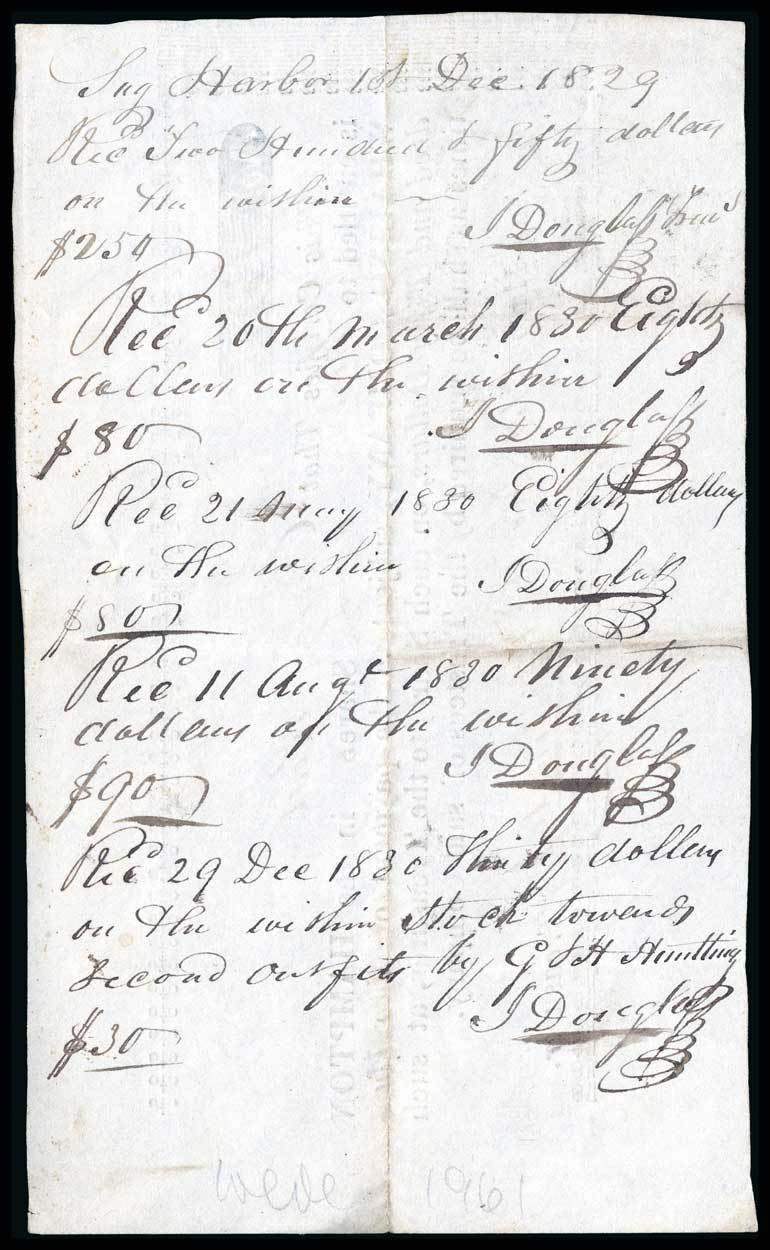 Sag Harbor 1st Dec. 1829
Recd Two Hundred & fifty dollars
on the within
J Douglass
$250
Recd 20th March 1830 Eighty
dollars on the within
$80 J Douglass
Recd 21 May 1830 Eighty dollars
on the within
J Douglass
$80
Recd 11 Augt 1830 Ninety
dollars on the within
J Douglass
$90
Recd 29 Dec 1830 Thirty dollars
on the within stock towards
second outfits by G & H Huntting
J Douglass
$30
1961